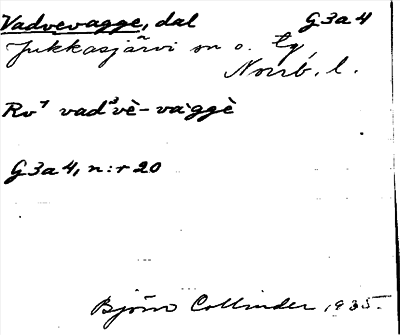 Vadvevagge, dal G3a4
Jukkasjärvi sn o. tg,
Norrb. l.
Rv⁷ vad³vè-va`ggè
G3a4, n:r 20
Björn Collinder, 1935.